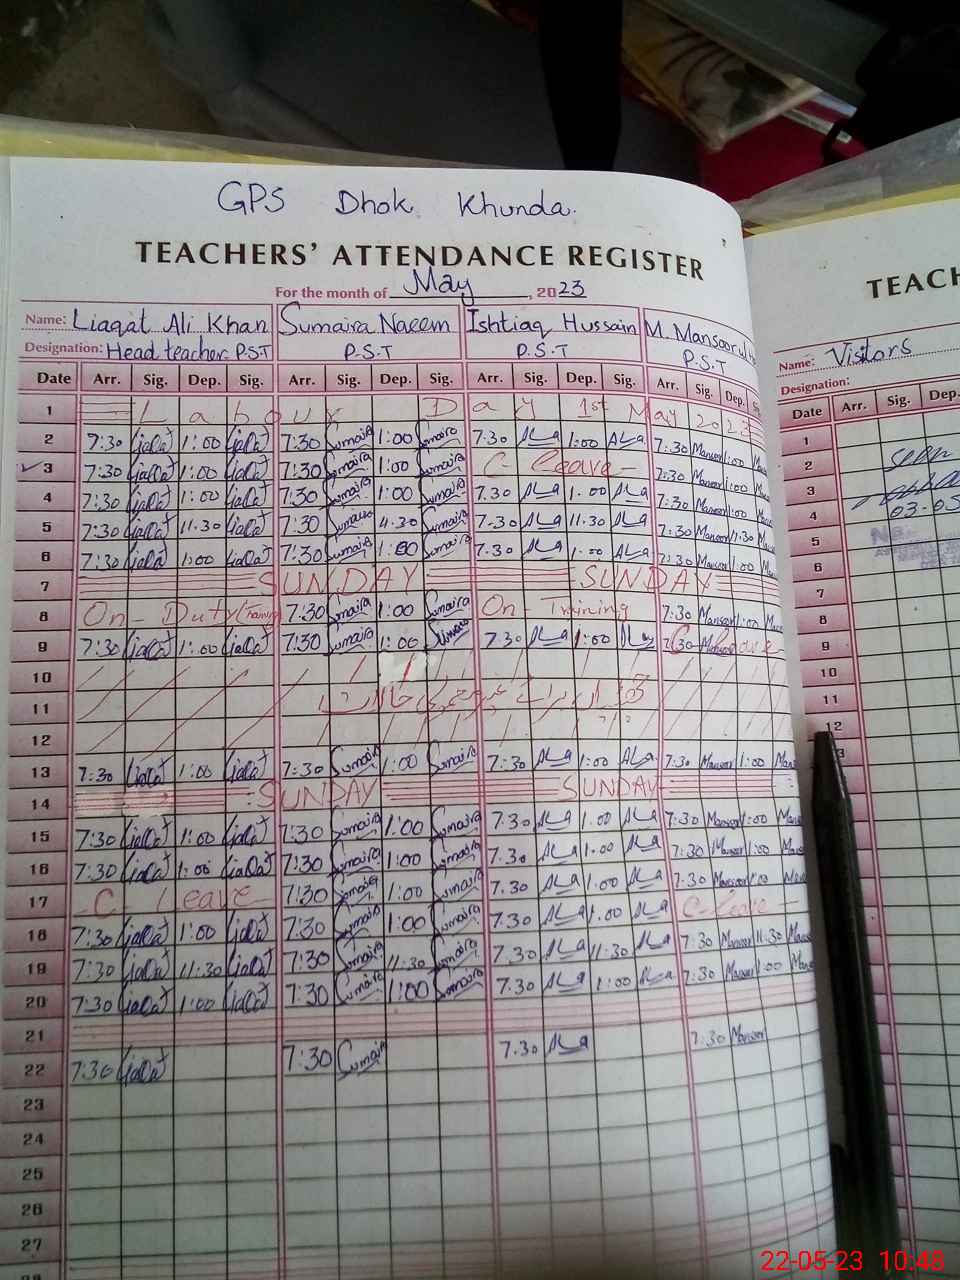 GPS Dhok Khunda.
TEACHERS' ATTENDANCE REGISTER
For the month of May, 2023
Name: Liaqat Ali Khan Sumaira Naeem Ishtiaq Hussain M. Mansoor ul
Designation: Head teacher P.S.T P.S.T P.S.T P.S.T
Date Arr. Sig. Dep. Sig. Arr. Sig. Dep. Sig. Arr. Sig. Dep. Sig. Arr. Sig. Dep. Sig.
1 Labour Day 1st May 2023
2 7:30 liaQat 1:00 liaQat 7:30 Sumaira 1:00 Sumaira 7.30 1:00 7:30 Mansoor 1:00
3 7:30 liaQat 1:00 liaQat 7:30 Sumaira 1:00 Sumaira C- Leave- 7:30 Mansoor 1:00
4 7:30 liaQat 1:00 liaQat 7:30 Sumaira 1:00 Sumaira 7.30 1.00 7:30 Mansoor 1:00
5 7:30 liaQat 11.30 liaQat 7:30 Sumaira 11.30 Sumaira 7.30 11.30 7:30 Mansoor 11:30
6 7:30 liaQat 1:00 liaQat 7:30 Sumaira 1:00 Sumaira 7.30 1.00 7:30 Mansoor 1:00
7 SUNDAY SUNDAY
8 On- Duty/Training 7:30 Sumaira 1:00 Sumaira On- Training 7:30 Mansoor 1:00
9 7:30 liaQat 1:00 liaQat 7:30 Sumaira 1:00 Sumaira 7.30 1:00 7:30 Mansoor C-Leave-
10
11
12
13 7:30 liaQat 1:00 liaQat 7:30 Sumaira 1:00 Sumaira 7:30 1:00 7:30 Mansoor 1:00
14 SUNDAY SUNDAY
15 7:30 liaQat 1:00 liaQat 7:30 Sumaira 1:00 Sumaira 7.30 1.00 7:30 Mansoor 1:00
16 7:30 liaQat 1:00 liaQat 7:30 Sumaira 1:00 Sumaira 7.30 1.00 7:30 Mansoor 1:00
17 -C- Leave- 7:30 Sumaira 1:00 Sumaira 7.30 1.00 7.30 Mansoor 1:00
18 7:30 liaQat 1:00 liaQat 7:30 Sumaira 1:00 Sumaira 7.30 1.00 C-Leave-
19 7:30 liaQat 11:30 liaQat 7:30 Sumaira 11:30 Sumaira 7.30 11:30 7:30 Mansoor 11:30
20 7:30 liaQat 1:00 liaQat 7:30 Sumaira 1:00 Sumaira 7.30 1:00 7:30 Mansoor 1:00
21
22 7:30 liaQat 7:30 Sumaira 7.30 7:30 Mansoor
23
24
25
26
27
TEACH
Name: Visitors
Designation:
Date Arr. Sig. Dep.
1
2
3
4 03-05
5
6
7
8
9
10
11
12
22-05-23 10:48